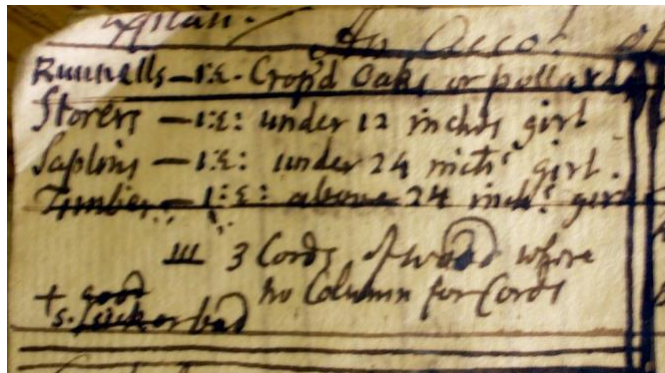 An Accot. of
Runnells — i:e. Crop'd Oaks or pollards
Storers — i:e: under 12 inches girt
Saplins — i:e: under 24 inch.s girt
Timber — i:e: above 24 inch.s girt
III 3 Cords of wood where
no Column for Cords
+ good
s. or bad